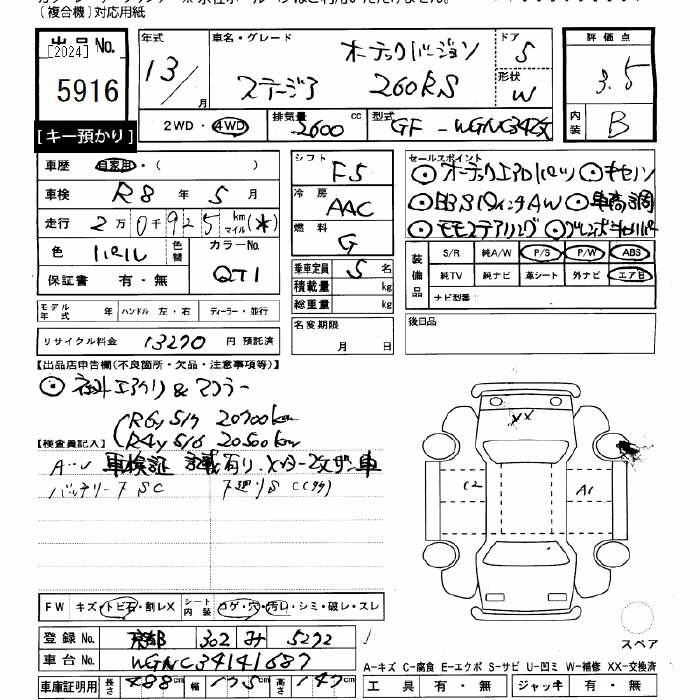 (複合機)対応用紙
出品No.
[2024]
5916
[キー預かり]
年式 13/ 月
車名・グレード オーテックバージョン
ステージア 260RS
ドア 5
形状 W
評価点 3.5
内装 B
2WD・4WD
排気量 2600 cc
型式 GF-WGNC34改
車歴 自家用・( )
車検 R8 年 5 月
走行 2万0千925 km マイル (*)
色 パール 色替
カラーNo. QT1
保証書 有・無
シフト F5
冷房 AAC
燃料 G
乗車定員 5 名
積載量 kg
総重量 kg
名変期限 月 日
セールスポイント
◎オーテックエアロパーツ ◎キセノン
◎BBS 17インチAW ◎車高調
◎モモステアリング ◎ブレンボキャリパー
装備品
S/R 純A/W P/S P/W ABS
純TV 純ナビ 革シート 外ナビ エアB
ナビ型番:
後日品
モデル年式 年 ハンドル 左・右 ディーラー・並行
リサイクル料金 13270 円 預託済
【出品店申告欄(不良箇所・欠品・注意事項等)】
◎社外エアクリ&マフラー
R6y 5/7 20700km
R4y 5/6 20500km
【検査員記入】
車検証 記載有り.メーター改ザン車
バッテリー
FW キズ・トビ石・割レX シート内装 コゲ・穴・汚レ・シミ・破レ・スレ
登録No. 京都 302 み 5272
車台No. WGNC34141687
車庫証明用 長さ 488cm 幅 175cm 高さ 149cm
C2
A1
XX
スペア
A-キズ C-腐食 E-エクボ S-サビ U-凹ミ W-補修 XX-交換済
工具 有・無 ジャッキ 有・無